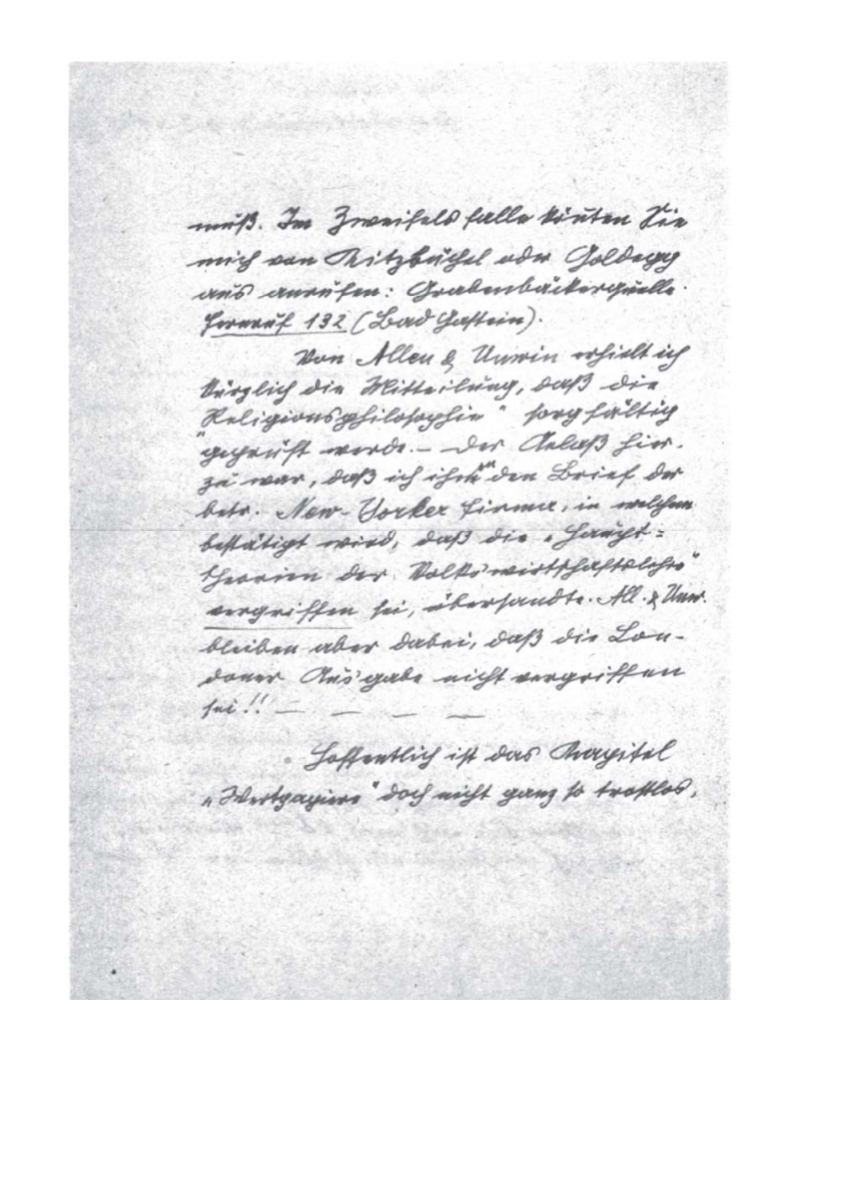 muß. Im Zweifelsfalle könnten Sie
mich von Kitzbüchel oder Goldegg
aus anrufen: Grabenbäckerquelle.
Fernruf 132 (Bad Gastein).
Von Allen & Unwin erhielt ich
kürzlich die Mitteilung, daß die
„Religionsphilosophie" sorgfältig
geprüft werde. — Der Anlaß hier-
zu war, daß ich ihnen den Brief der
betr. New-Yorker Firma, in welchem
bestätigt wird, daß die „Haupt=
theorien der Volkswirtschaftslehre"
vergriffen sei, übersandte. All. & Unw.
bleiben aber dabei, daß die Lon-
doner Ausgabe nicht vergriffen
sei!! — — — —
Hoffentlich ist das Kapitel
„Wertpapiere" doch nicht ganz so trostlos,